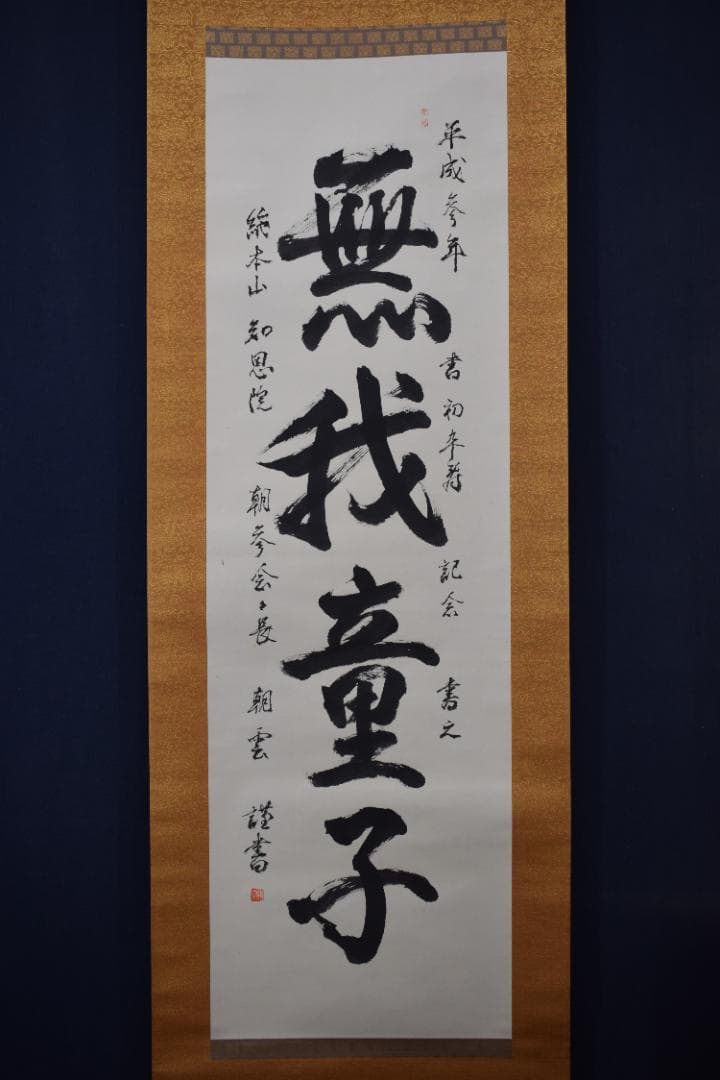 平成参年 書初 卒寿 記念 書之
無我童子
総本山 知恩院 朝参会々長 朝雲 謹書